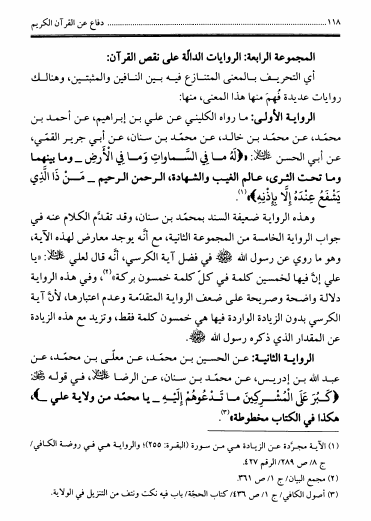 ١١٨ ........ دفاع عن القرآن الكريم
المجموعة الرابعة: الروايات الدالّة على نقص القرآن:
أي التحريف بالمعنى المتنازع فيه بين النافين والمثبتين، وهنالك
روايات عديدة فُهمَ منها هذا المعنى، منها:
الرواية الأولى: ما رواه الكليني عن علي بن إبراهيم، عن أحمد بن
محمّد، عن محمّد بن خالد، عن محمّد بن سنان، عن أبي جرير القمّي،
عن أبي الحسن عليه السلام: ﴿لَهُ مَا فِي السَّماواتِ وَمَا فِي الْأَرضِ _ وما بينهما
وما تحت الثرى، عالم الغيب والشهادة، الرحمن الرحيم _ مَنْ ذَا الَّذِي
يَشْفَعُ عِنْدَهُ إِلَّا بِإِذْنِهِ﴾»(١).
وهذه الرواية ضعيفة السند بمحمّد بن سنان، وقد تقدَّم الكلام عنه في
جواب الرواية الخامسة من المجموعة الثانية، مع أنَّه يوجد معارض لهذه الآية،
وهو ما روي عن رسول الله ﷺ في فضل آية الكرسي، أنَّه قال لعلي عليه السلام: «يا
علي إنَّ فيها لخمسين كلمة في كلّ كلمة خمسون بركة»(٢)، وفي هذه الرواية
دلالة واضحة وصريحة على ضعف الرواية المتقدّمة وعدم اعتبارها، لأنَّ آية
الكرسي بدون الزيادة الواردة فيها هي خمسون كلمة فقط، وتزيد مع هذه الزيادة
عن المقدار الذي ذكره رسول الله ﷺ.
الرواية الثانية: عن الحسين بن محمّد، عن معلّى بن محمّد، عن
عبد الله بن إدريس، عن محمّد بن سنان، عن الرضا عليه السلام، في قوله
﴿كَبُرَ عَلَى الْمُشْرِكِينَ مَا تَدْعُوهُمْ إِلَيْهِ _ يا محمّد من ولاية علي _﴾،
هكذا في الكتاب مخطوطة»(٣).
(١) الآية مجرَّدة عن الزيادة هي من سورة (البقرة: ٢٥٥)؛ والرواية هي في روضة الكافي/
ج ٨/ ص ٢٨٩/ الرقم ٤٢٧.
(٢) مجمع البيان/ ج ١/ ص ٣٦١.
(٣) أصول الكافي/ ج ١/ ص ٤٣٦/ كتاب الحجّة/ باب فيه نكت ونتف من التنزيل في الولاية.